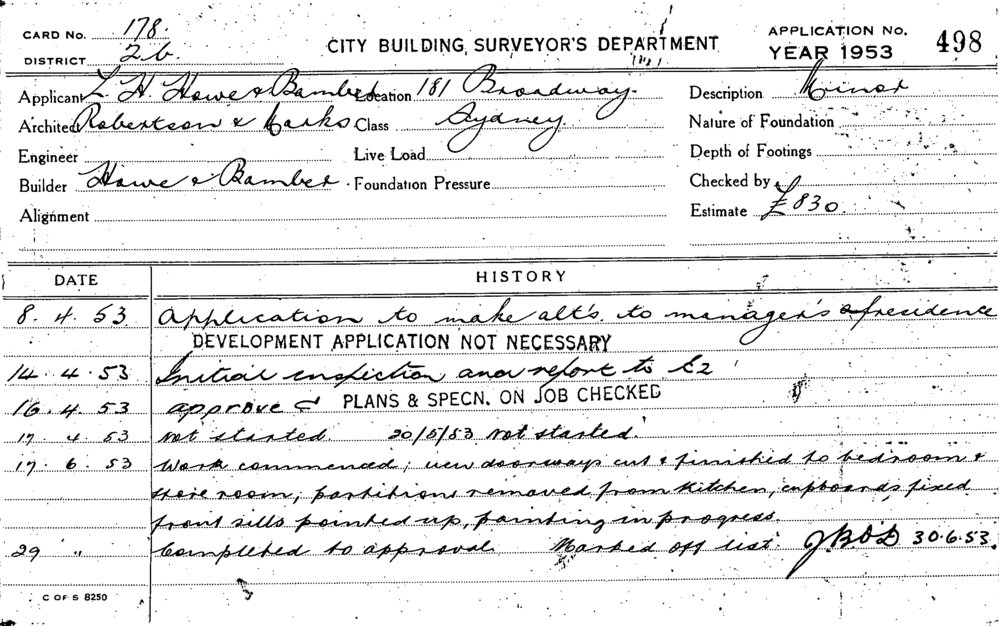 CARD No. 178.
DISTRICT 2b.
CITY BUILDING SURVEYOR'S DEPARTMENT
APPLICATION No.
YEAR 1953
498
Applicant L. H. Howe & Bamber Location 181 Broadway. Description Minor
Architect Robertson & Marks Class Sydney Nature of Foundation
Engineer Live Load Depth of Footings
Builder Howe & Bamber. Foundation Pressure Checked by
Alignment Estimate £830.
DATE HISTORY
8. 4. 53 Application to make alt's. to manager's residence
DEVELOPMENT APPLICATION NOT NECESSARY
14. 4. 53 Initial inspection and report to E2
16. 4. 53 approved PLANS & SPECN. ON JOB CHECKED
17. 4. 53 Not started. 20/5/53 Not started.
17. 6. 53 Work commenced; new doorways cut & finished to bedroom &
store room, partitions removed from kitchen, cupboards fixed
front sills pointed up, painting in progress.
29 " Completed to approval. Marked off list. 30.6.53.
C OF S 8250